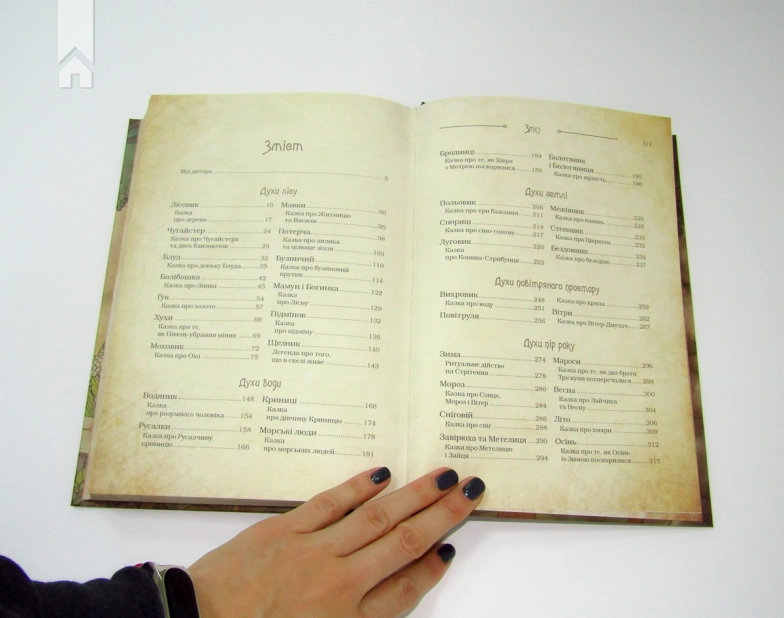 Зміст
Від автора 5
Духи лісу
Лісовик 10
Казка
про дерева 17
Чугайстер 24
Казка про Чугайстера
та двох близнючок 29
Блуд 32
Казка про доньку Блуда 35
Болібошка 42
Казка про Лиина 45
Гук 54
Казка про золото 57
Хухи 66
Казка про те,
як Півень убрання міняв 69
Моховик 72
Казка про Оха 75
Мавки 80
Казка про Житницю
та Василя 95
Потерча 98
Казка про
та цілюще зілля 103
Бузничий 110
Казка про бузиновий
прутик 114
Мамун і Богинка 122
Казка
про Лісну 129
Підмінок 132
Казка
про підміну 136
Щезник 140
Легенда про того,
що в скелі живе 143
Духи води
Водяник 148
Казка
про розумного чоловіка 154
Русалки 158
Казка про Русалчину
криницю 166
Криниці 168
Казка
про дівчину Криницю 174
Морські люди 178
Казка
про морських людей 181
Зміст
Бродниці 184
Казка про те, як Хівря
з Мотрею посварилися 188
Болотяник
і Болотяниця 190
Казка про вірність 196
Духи землі
Польовик 206
Казка про три бажання 211
Спориш 214
Казка про сіно-солому 217
Луговик 220
Казка
про Коника-Стрибунця 223
Межівник 226
Казка про камінь 228
Степовик 230
Казка про Циркуна 232
Бездонник 234
Казка про безодню 237
Духи повітряного простору
Вихровик 248
Казка про воду 251
Повітруля 256
Казка про крила 259
Вітри 262
Казка про Вітер Дмухач 267
Духи пір року
Зима 274
Ритуальне дійство
на Стрітення 278
Мороз 280
Казка про Сонце,
Мороз і Вітер 284
Сніговій 286
Казка про сніг 288
Завірюха та Метелиця 290
Казка про Метелицю
і Зайця 294
Мароси 296
Казка про те, як два брати
Тріскуни посперечалися 298
Весна 300
Казка про Зайчика
та Весну 304
Літо 306
Казка про хмари 309
Осінь 312
Казка про те, як Осінь
із Зимою посварилися 315